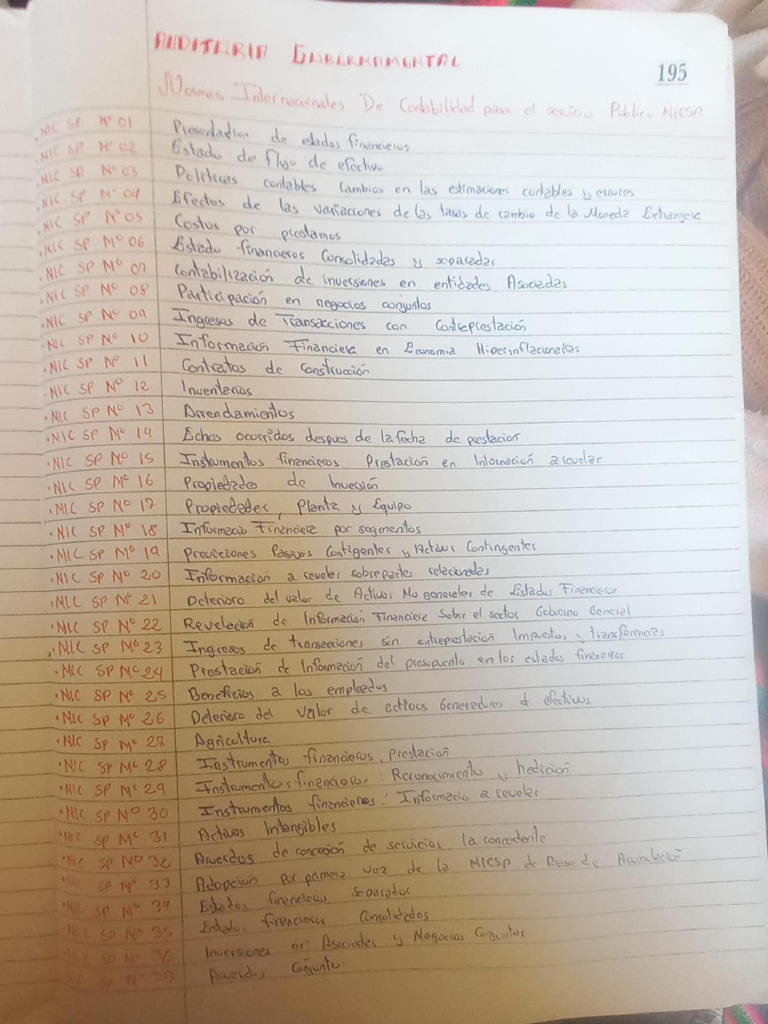 AUDITERIA GUBERNAMENTAL
195
Normas Internacionales De Contabilidad para el servicio Publico NICSP
.NIC SP Nº 01 Presentación de estados financieros
.NIC SP Nº 02 Estado de flujo de efectivo
.NIC SP Nº 03 Politicas contables cambios en las estimaciones contables y errores
.NIC SP Nº 04 Efectos de las variaciones de las tasas de cambio de la Moneda Extrangera
.NIC SP Nº 05 Costos por prestamos
.NIC SP Nº 06 Estado financieros Consolidadas y separadas
.NIC SP Nº 07 Contabilización de inversiones en entidades Asociadas
.NIC SP Nº 08 Participación en negocios conjuntos
.NIC SP Nº 09 Ingresos de Transacciones con Contraprestación
.NIC SP Nº 10 Información Financiera en Economia Hiperinflacionarias
.NIC SP Nº 11 Contratos de construcción
.NIC SP Nº 12 Inventarios
.NIC SP Nº 13 Arrendamientos
.NIC SP Nº 14 Echos ocurridos despues de la fecha de prestacion
.NIC SP Nº 15 Instrumentos financieros Prestación en Información a revelar
.NIC SP Nº 16 Propiedades de Inversión
.NIC SP Nº 17 Propiedades, Planta y Equipo
.NIC SP Nº 18 Informacio Financiera por segmentos
.NIC SP Nº 19 Previciones Pasivos Contigentes y Activos Contingentes
.NIC SP Nº 20 Información a revelar sobre partes relacionadas
.NIC SP Nº 21 Deterioro del valor de Activos No generales de Estados Financieros
.NIC SP Nº 22 Revelación de Información Financiera Sobre el sector Gobierno General
.NIC SP Nº 23 Ingresos de transacciones sin entreprestación Impuestos y transferencias
.NIC SP Nº 24 Prestación de Información del presupuesto en los estados financieros
.NIC SP Nº 25 Beneficios a los empleados
.NIC SP Nº 26 Deterioro del valor de activos Generadores d efectivos
.NIC SP Nº 27 Agricultura
.NIC SP Nº 28 Instrumentos financieros, prestación
.NIC SP Nº 29 Instrumentos financieros: Reconocimiento y medición
.NIC SP Nº 30 Instrumentos financieros: Informacio a revelar
.NIC SP Nº 31 Activos Intangibles
NIC SP Nº 32 Acuerdos de concesión de servicios, la concedente
SP Nº 33 Adopcion por primera vez de la NICSP d Base de Acumulación
NIC SP Nº 34 Estados financieros separados
NIC SP Nº 35 Estados financieros Consolidados
NIC SP Nº 36 Inversiones en Asociadas y Negocios Conjuntos
NIC SP Nº 37 Acuerdos Conjunto.